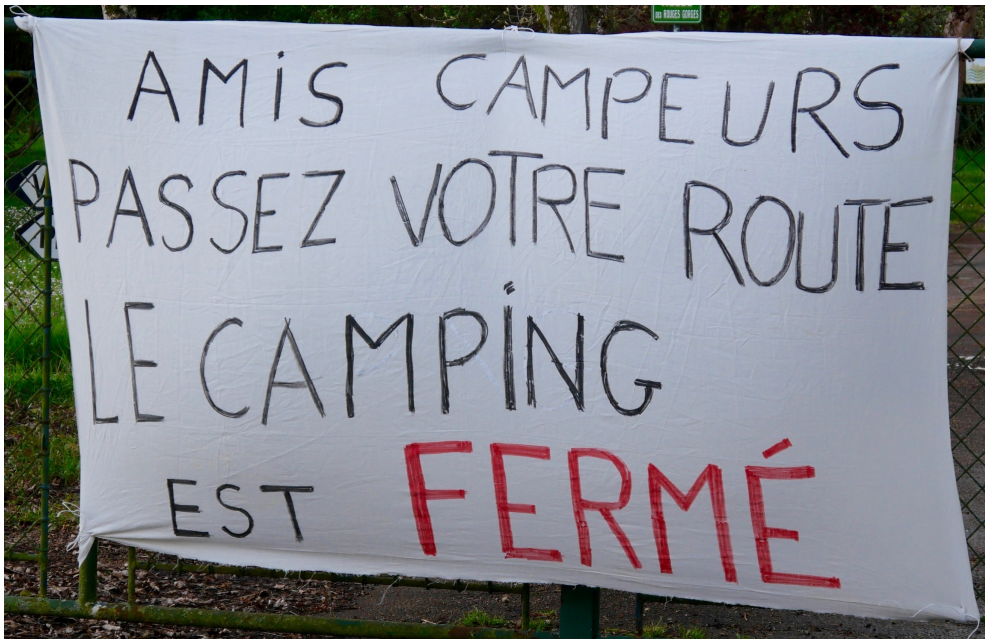 DES ROUGES GORGES
AMiS CAMPEURS
PASSEZ VOTRE ROUTE
LE CAMPiNG
EST FERMÉ